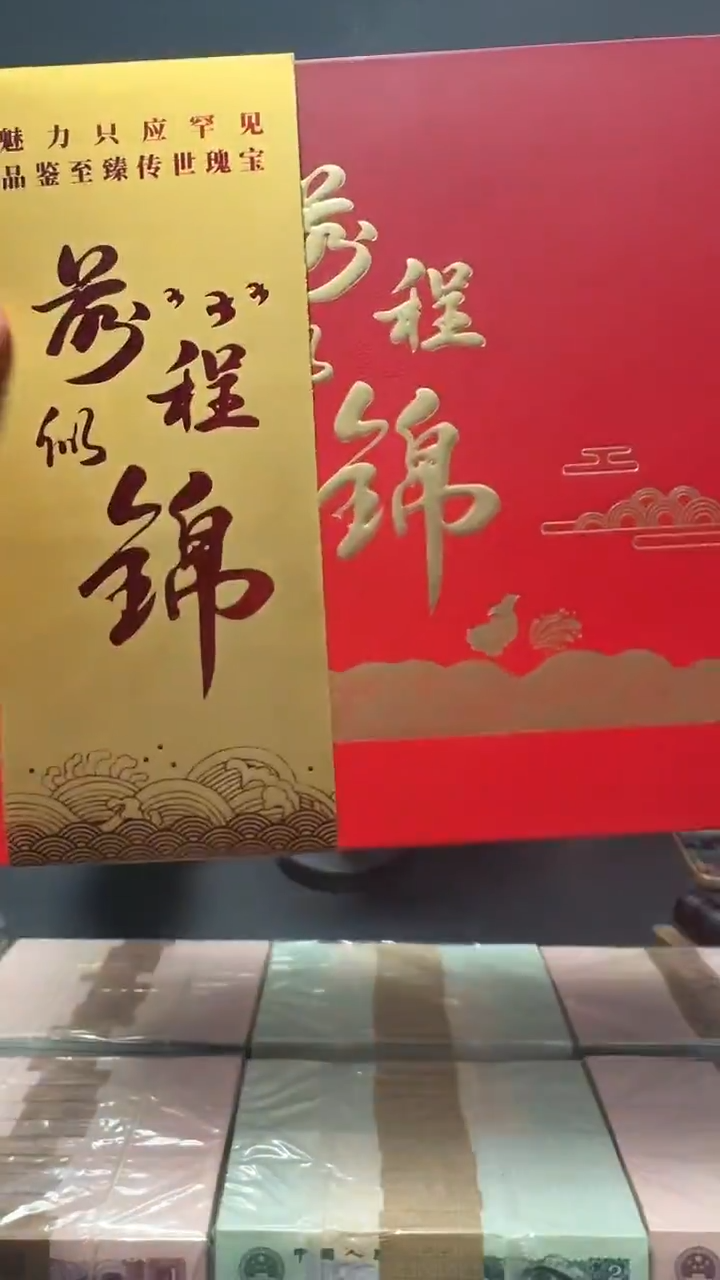 魅力只应罕见
品鉴至臻传世瑰宝
前程
似
錦
前程
錦
中国人民
2